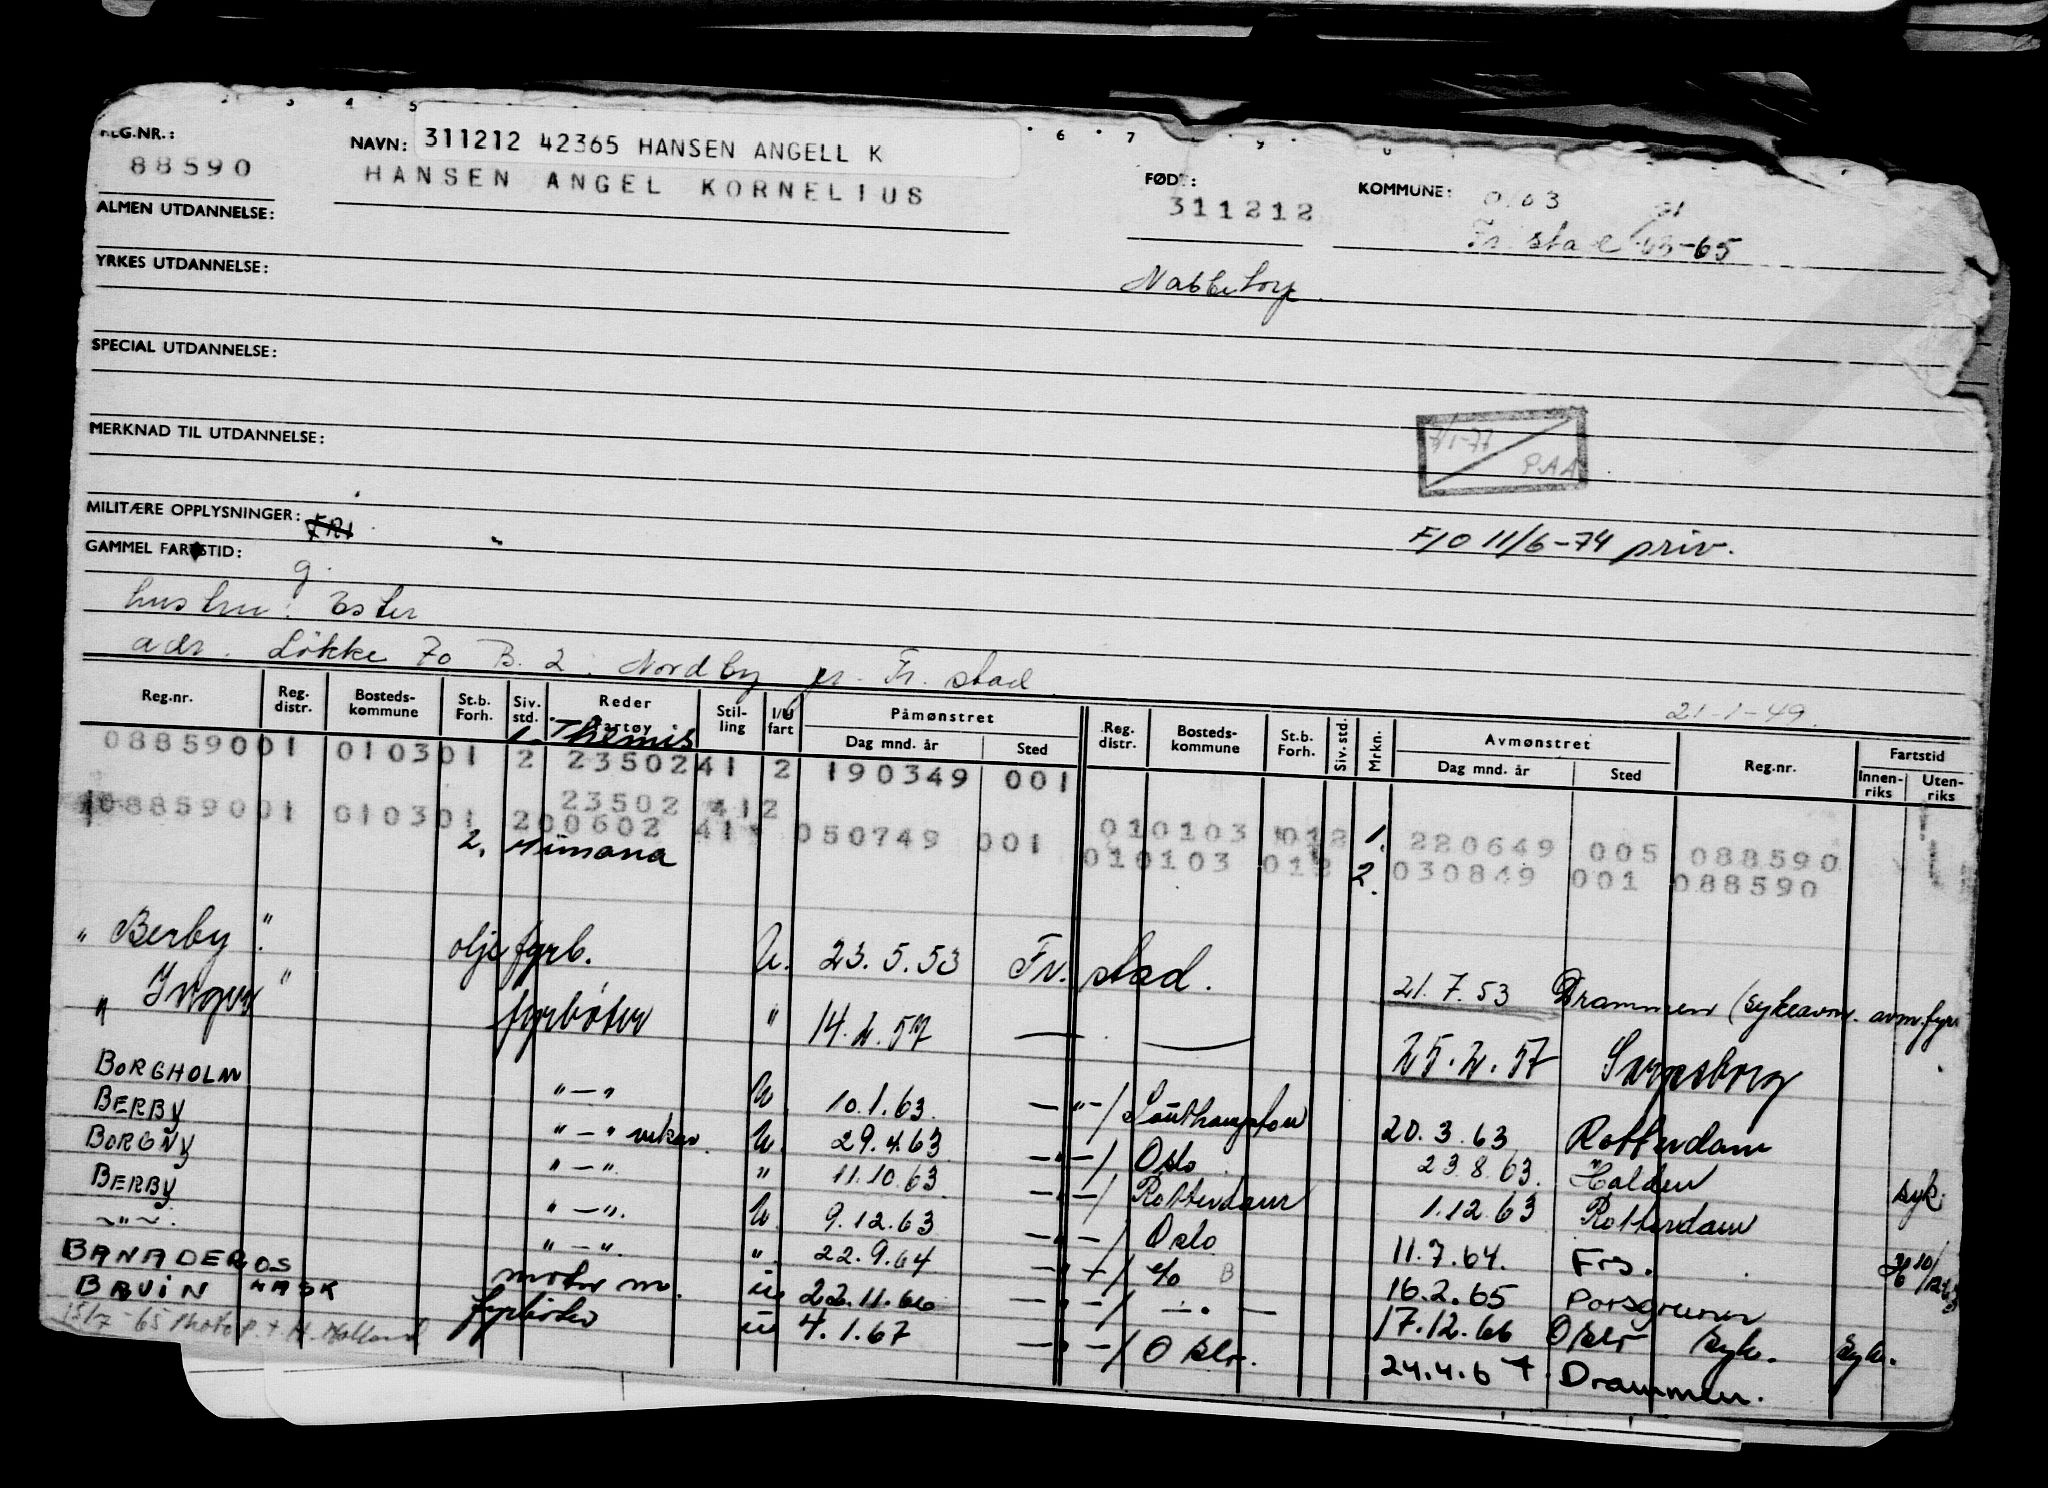 REG.NR.: NAVN: 311212 42365 HANSEN ANGELL K
88590 HANSEN ANGEL KORNELIUS FØDT: 311212 KOMMUNE: 0103
ALMEN UTDANNELSE: Fr. stad 63-65
YRKES UTDANNELSE: Nabbetorp.
SPECIAL UTDANNELSE:
MERKNAD TIL UTDANNELSE: 7/1-77 P.A.A
MILITÆRE OPPLYSNINGER: FRI F/O 11/6-74 priv.
GAMMEL FARTSTID: g.
hustru: Ester
adr. Løkke 70 B. 2. Nordby pr. Fr. stad
21-1-49.
Reg.nr. Reg. distr. Bosteds-kommune St.b. Forh. Siv. std. Reder Stil-ling I/U fart Påmønstret Dag mnd. år Sted Reg. distr. Bosteds-kommune St.b. Forh. Siv. std. Mrkn. Avmønstret Dag mnd. år Sted Reg.nr. Fartstid Innen-riks Uten-riks
1. Themis
088590 01 0103 01 2 23502 41 2 190349 001
23502 41 2
088590 01 0103 01 2 00602 41 050749 001 01 0103 01 2 1. 220649 005 088590
2. Nimana 01 0103 01 2 2. 030849 001 088590
" Berby " olje fyrb. U. 23.5.53 Fr. stad. 21.7.53 Drammen (sykeavm. avm. fyr
" Inger " fyrbøter " 14.2.57 — — 25.2.57 Sarpsborg
BORGHOLM "—" U. 10.1.63. —"—/ Southampton 20.3.63 Rotterdam
BERBY "—" vikar. U. 29.4.63 —"—/ Oslo 23.8.63. Halden syk.
BORGNY "—" " 11.10.63. —"—/ Rotterdam 1.12.63 Rotterdam
BERBY "—". U. 9.12.63 —"—/ Oslo 11.7.64. Frs.
~"~. "—". " 22.9.64 —"—/ B 16.2.65 Porsgrunn
BANADEROS motor m. u 22.11.66 —"—/ —"— 17.12.66 Oslo syk. syk.
BRUIN fyrbøter u 4.1.67 —"—/ Oslo. 24.4.67 Drammen.
15/7-65